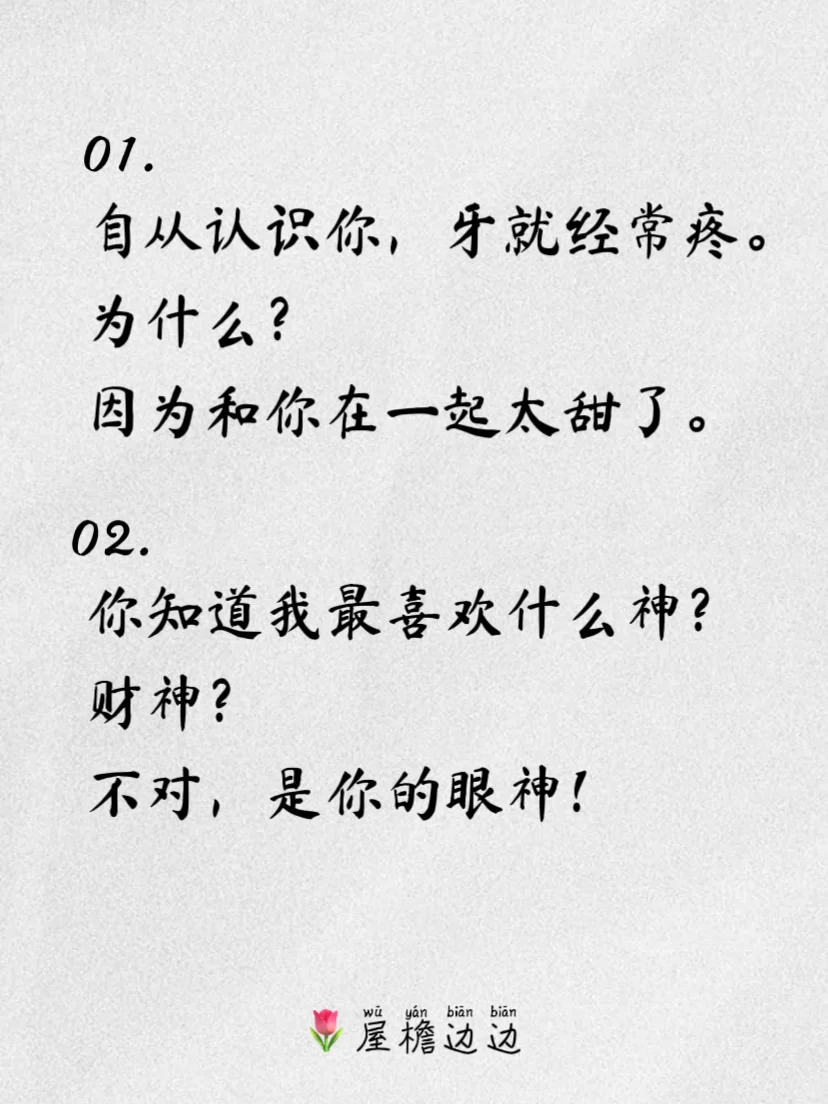 01.
自从认识你，牙就经常疼。
为什么？
因为和你在一起太甜了。
02.
你知道我最喜欢什么神？
财神？
不对，是你的眼神！
wū yán biān biān
屋檐边边